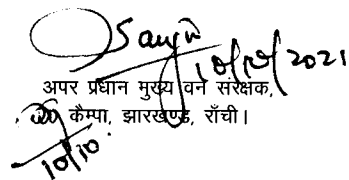 Sanjiv
10/10/2021
अपर प्रधान मुख्य वन संरक्षक,
कैम्पा, झारखण्ड, राँची।
10/10